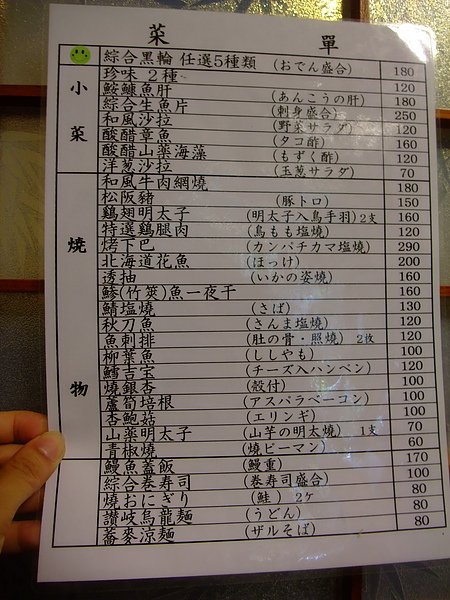 菜 單
綜合黑輪 任選5種類 (おでん盛合) 180
小菜
珍味 2種 120
鮟鱇魚肝 (あんこうの肝) 180
綜合生魚片 (刺身盛合) 250
和風沙拉 (野菜サラダ) 120
酸醋章魚 (タコ酢) 160
酸醋山藥海藻 (もずく酢) 120
洋葱沙拉 (玉葱サラダ) 70
燒物
和風牛肉網燒 180
松阪豬 (豚トロ) 150
鷄翅明太子 (明太子入鳥手羽)2支 160
特選鷄腿肉 (鳥もも塩燒) 120
烤下巴 (カンパチカマ塩燒) 290
北海道花魚 (ほっけ) 200
透抽 (いかの姿燒) 160
鯵(竹筴)魚一夜干 160
鯖塩燒 (さば) 130
秋刀魚 (さんま塩燒) 120
魚刺排 (肚の骨・照燒) 2枚 120
柳葉魚 (ししやも) 100
鱈吉宝 (チーズ入ハンペン) 120
燒銀杏 (殼付) 100
蘆筍培根 (アスパラベーコン) 100
杏鮑菇 (エリンギ) 100
山藥明太子 (山芋の明太燒) 1支 70
青椒燒 (燒ピーマン) 60
鰻魚蓋飯 (鰻重) 170
綜合卷寿司 (卷寿司盛合) 100
燒おにぎり (鮭) 2ケ 80
讃岐烏龍麵 (うどん) 80
蕎麥涼麵 (ザルそば) 80